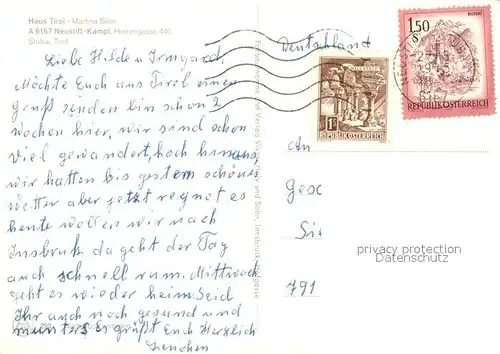 Haus Tirol - Martina Siller
A 6167 Neustift-Kampl, Herrengasse 440
Stubai, Tirol
Liebe Hilde u Irmgard
Möchte Euch aus Tirol einen
gruß senden bin schon 2
wochen hier, wir sind schon
viel gewandert, hoch hinaus
wir hatten bis gestern schönes
wetter aber jetzt regnet es
heute wollen wir nach
Insbruk da geht der Tag
auch schnell rum. Mittwoch
geht es wieder heim. Seid
Ihr auch noch gesund und
munter Es grüßt Euch Herzlich
Lenchen
Deutschland
1 S
REPUBLIK ÖSTERREICH
1.50
S
REPUBLIK ÖSTERREICH
6167
An
Gesc
Si
791
privacy protection
Datenschutz